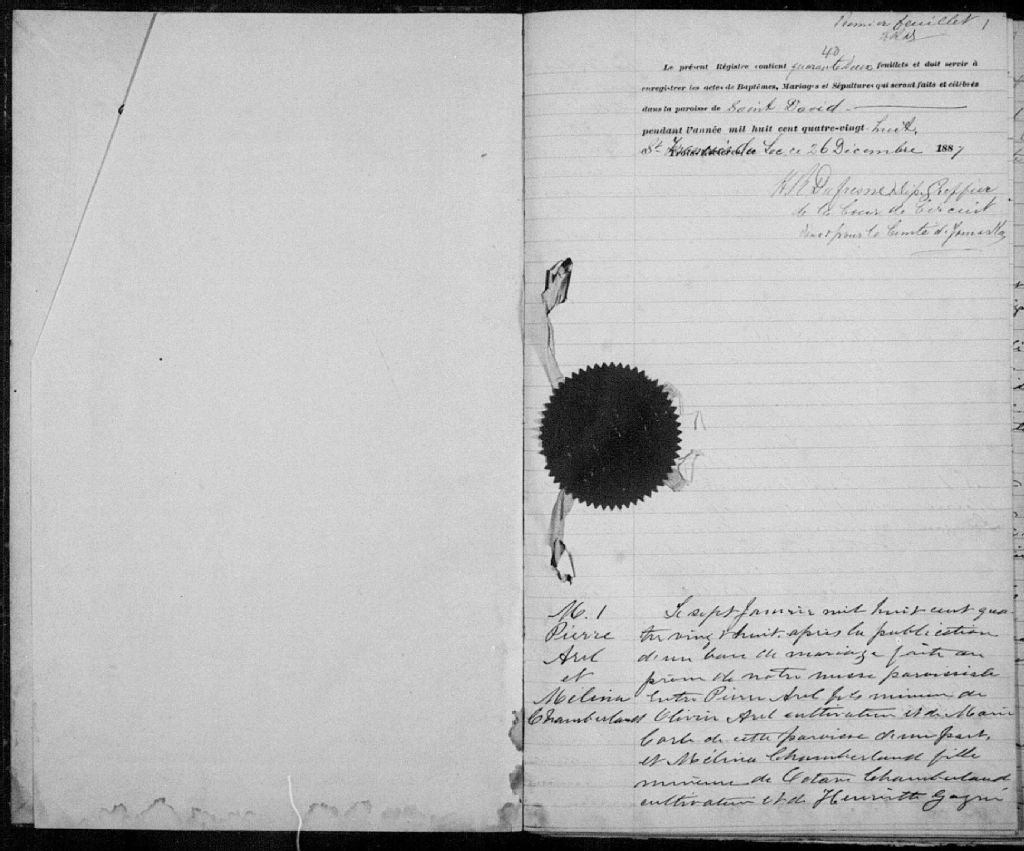 Premier feuillet 1
42
Le présent Régistre contient quarante deux feuillets et doit servir à
enregistrer les actes de Baptêmes, Mariages et Sépultures qui seront faits et célébrés
dans la paroisse de Saint David
pendant l'année mil huit cent quatre-vingt huit.
St François du Lac ce 26 Décembre 1887
Dufresne Dép. Greffier
de la Cour de Circuit
pour le Comté d'Yamaska
M. 1
Pierre
Arel
et
Mélina
Chamberland
Le sept Janvier mil huit cent qua-
tre vingt huit, après la publication
d'un banc de mariage faite au
prône de notre messe paroissiale
Entre Pierre Arel fils mineur de
Olivier Arel cultivateur et de Marie
de cette paroisse d'une part,
et Mélina Chamberland fille
mineure de Octave Chamberland
cultivateur et de Henriette Gagné